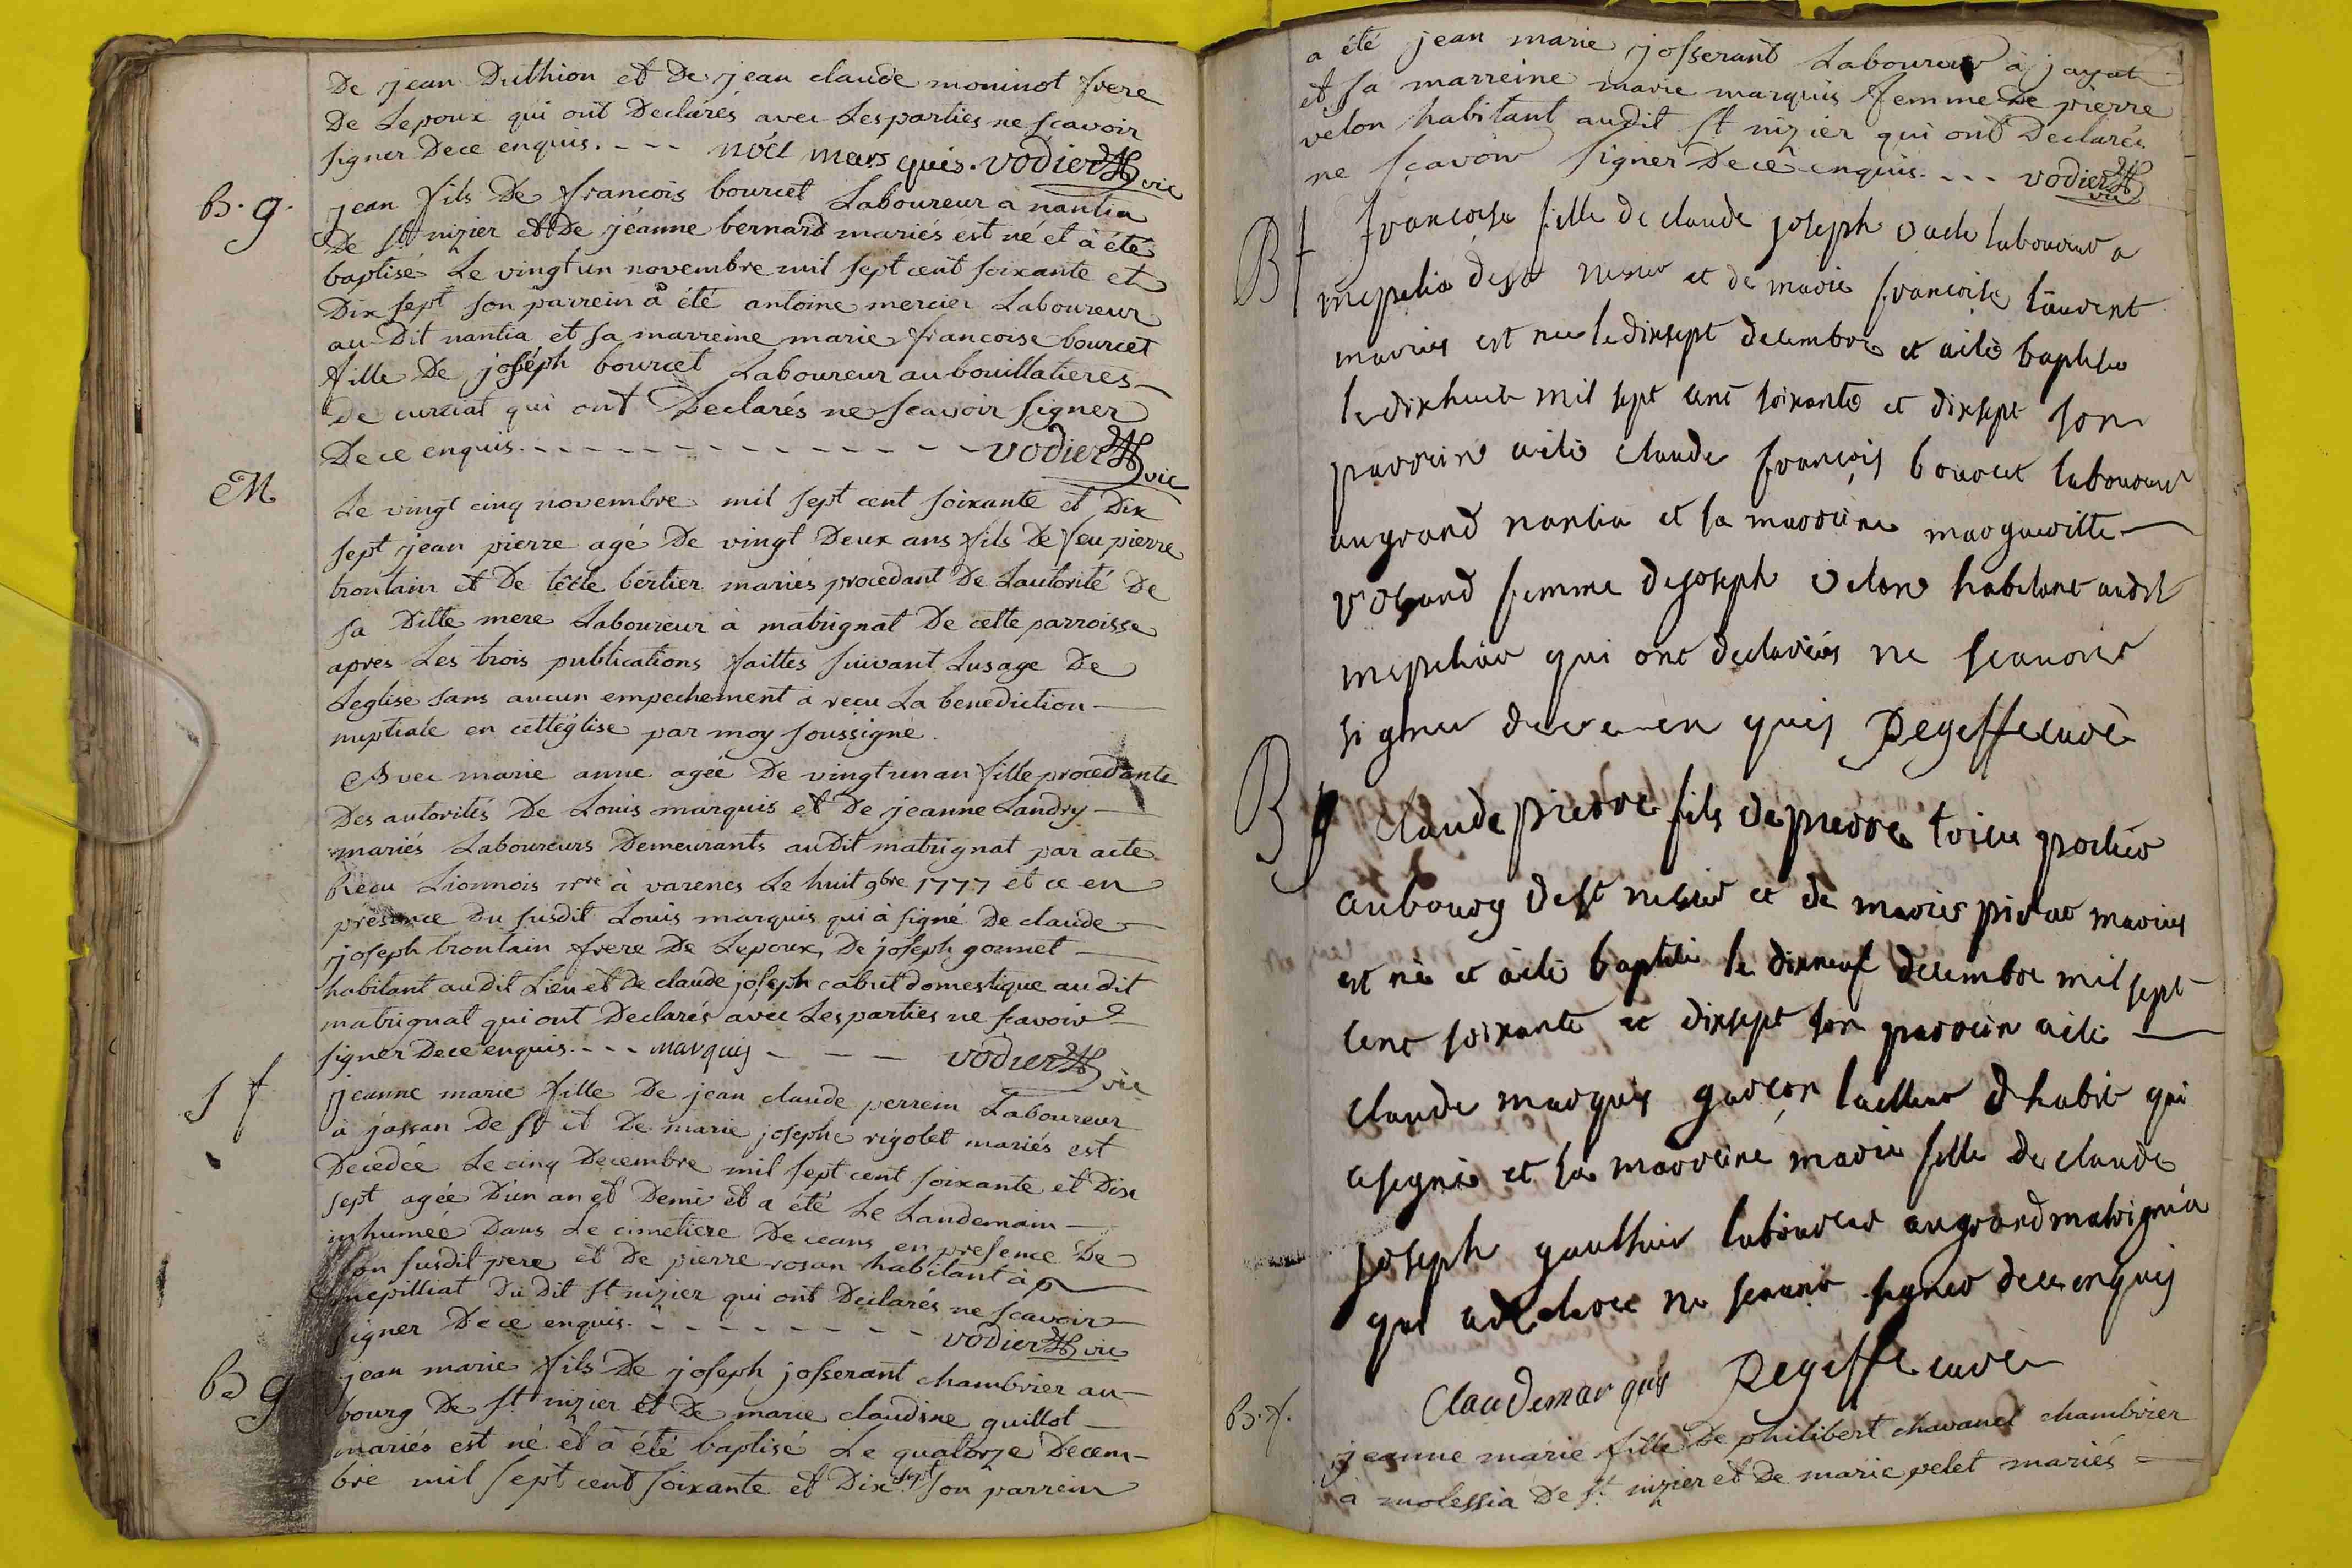 De jean Duthion et De jean claude moninot frere
De Lepoux qui ont Declarés avec Lesparties ne scavoir
signer Dece enquis. - - - nöel mars quis. vodier vic
B. g. jean fils De francois bourcet Laboureur a nantia
De st. nizier et De jéanne bernard mariés est né et à été
baptisé Le vingt un novembre mil sept cent soixante et
Dix sept son parrein à été antoine mercier Laboureur
au Dit nantia et sa marreine marie francoise bourcet
fille De joséph bourcet Laboureur au bouillatieres
de curciat qui ont Declarés ne scavoir signer
Dece enquis. - - - vodier vic
M Le vingt cinq novembre mil sept cent soixante et Dix
sept jean pierre agé De vingt Deux ans fils De feu pierre
trontain et De técle bertier mariés procedant De Lautorité De
sa Ditte mere Laboureur à matrignat De cette parroisse
apres Les trois publications faittes suivant Lusage De
Leglise sans aucun empechement à recu La benediction
nuptiale en cetteglise par moy soussigné.
Avec marie anne agée De vingt un an fille procedante
Des autorités De Louis marquis et De jeanne Landry
mariés Laboureurs Demeurants audit matrignat par acte
Recu Lionnois nre à varenes Le huit 9bre 1777 et ce en
présence Du susdit Louis marquis qui à signé De claude
joseph trontain frere De Lepoux, De joseph gonnet
habitant au dit Lieu et De claude joseph cabut domestique au dit
matrignat qui ont Declarés avec Lesparties ne scavoir
signer Dece enquis. - - - marquis - - - vodier vic
S f jeanne marie fille De jean claude perrein Laboureur
à jassan De st et De marie josephe rigolet mariés est
Decedée Le cinq Decembre mil sept cent soixante et Dix
sept agée D'un an et Demi et a été Le Landemain
inhumée Dans Le cimetiere De ceans en presence De
son susdit pere et De pierre rosan habitant à
mepilliat Du Dit st nizier qui ont Declarés ne scavoir
signer Dece enquis. - - - vodier vic
B g jean marie fils De joseph josserant chambrier au
bourg De st. nizier et De marie claudine guillot
mariés est né et à été baptisé Le quatorze Decem-
bre mil sept cent soixante et Dix sept son parrein
a été jean marie josserant Laboureur à jayat
et sa marreine marie marquis femme De pierre
velon habitant audit st nizier qui ont Declarés
ne scavoir signer Dece enquis. - - - vodier vic
B f francoise fille de claude joseph laboureur a
mepelia dest nesier et de marie francoise laurent
maries est nee le dixsept decembre et aeté baptisee
le dixhuit mil sept cent soixante et dixsept son
parrein aeté claude françois bourcet laboureur
augrand nantia et sa marreine margueritte
femme dejoseph velon habitant audit
mepelia qui ont declarés ne scauoir
signer dece enquis Regeffe curé
B g claude pierre fils de pierre
aubourg dest nesier et de marie maries
est né et aeté baptisé le dixneuf decembre mil sept
cent soixante et dixsept son parrein aeté
claude marquis garçon tailleur dhabit qui
asigné et sa marreine marie fille de claude
joseph gauthier laboureur augrand matrignia
qui a declaré ne scauoir signer dece enquis
Claudemarquis Regeffe curé
B. f. jeanne marie fille De philibert chavanel chambrier
à molessia De st. nizier et De marie pelet mariés